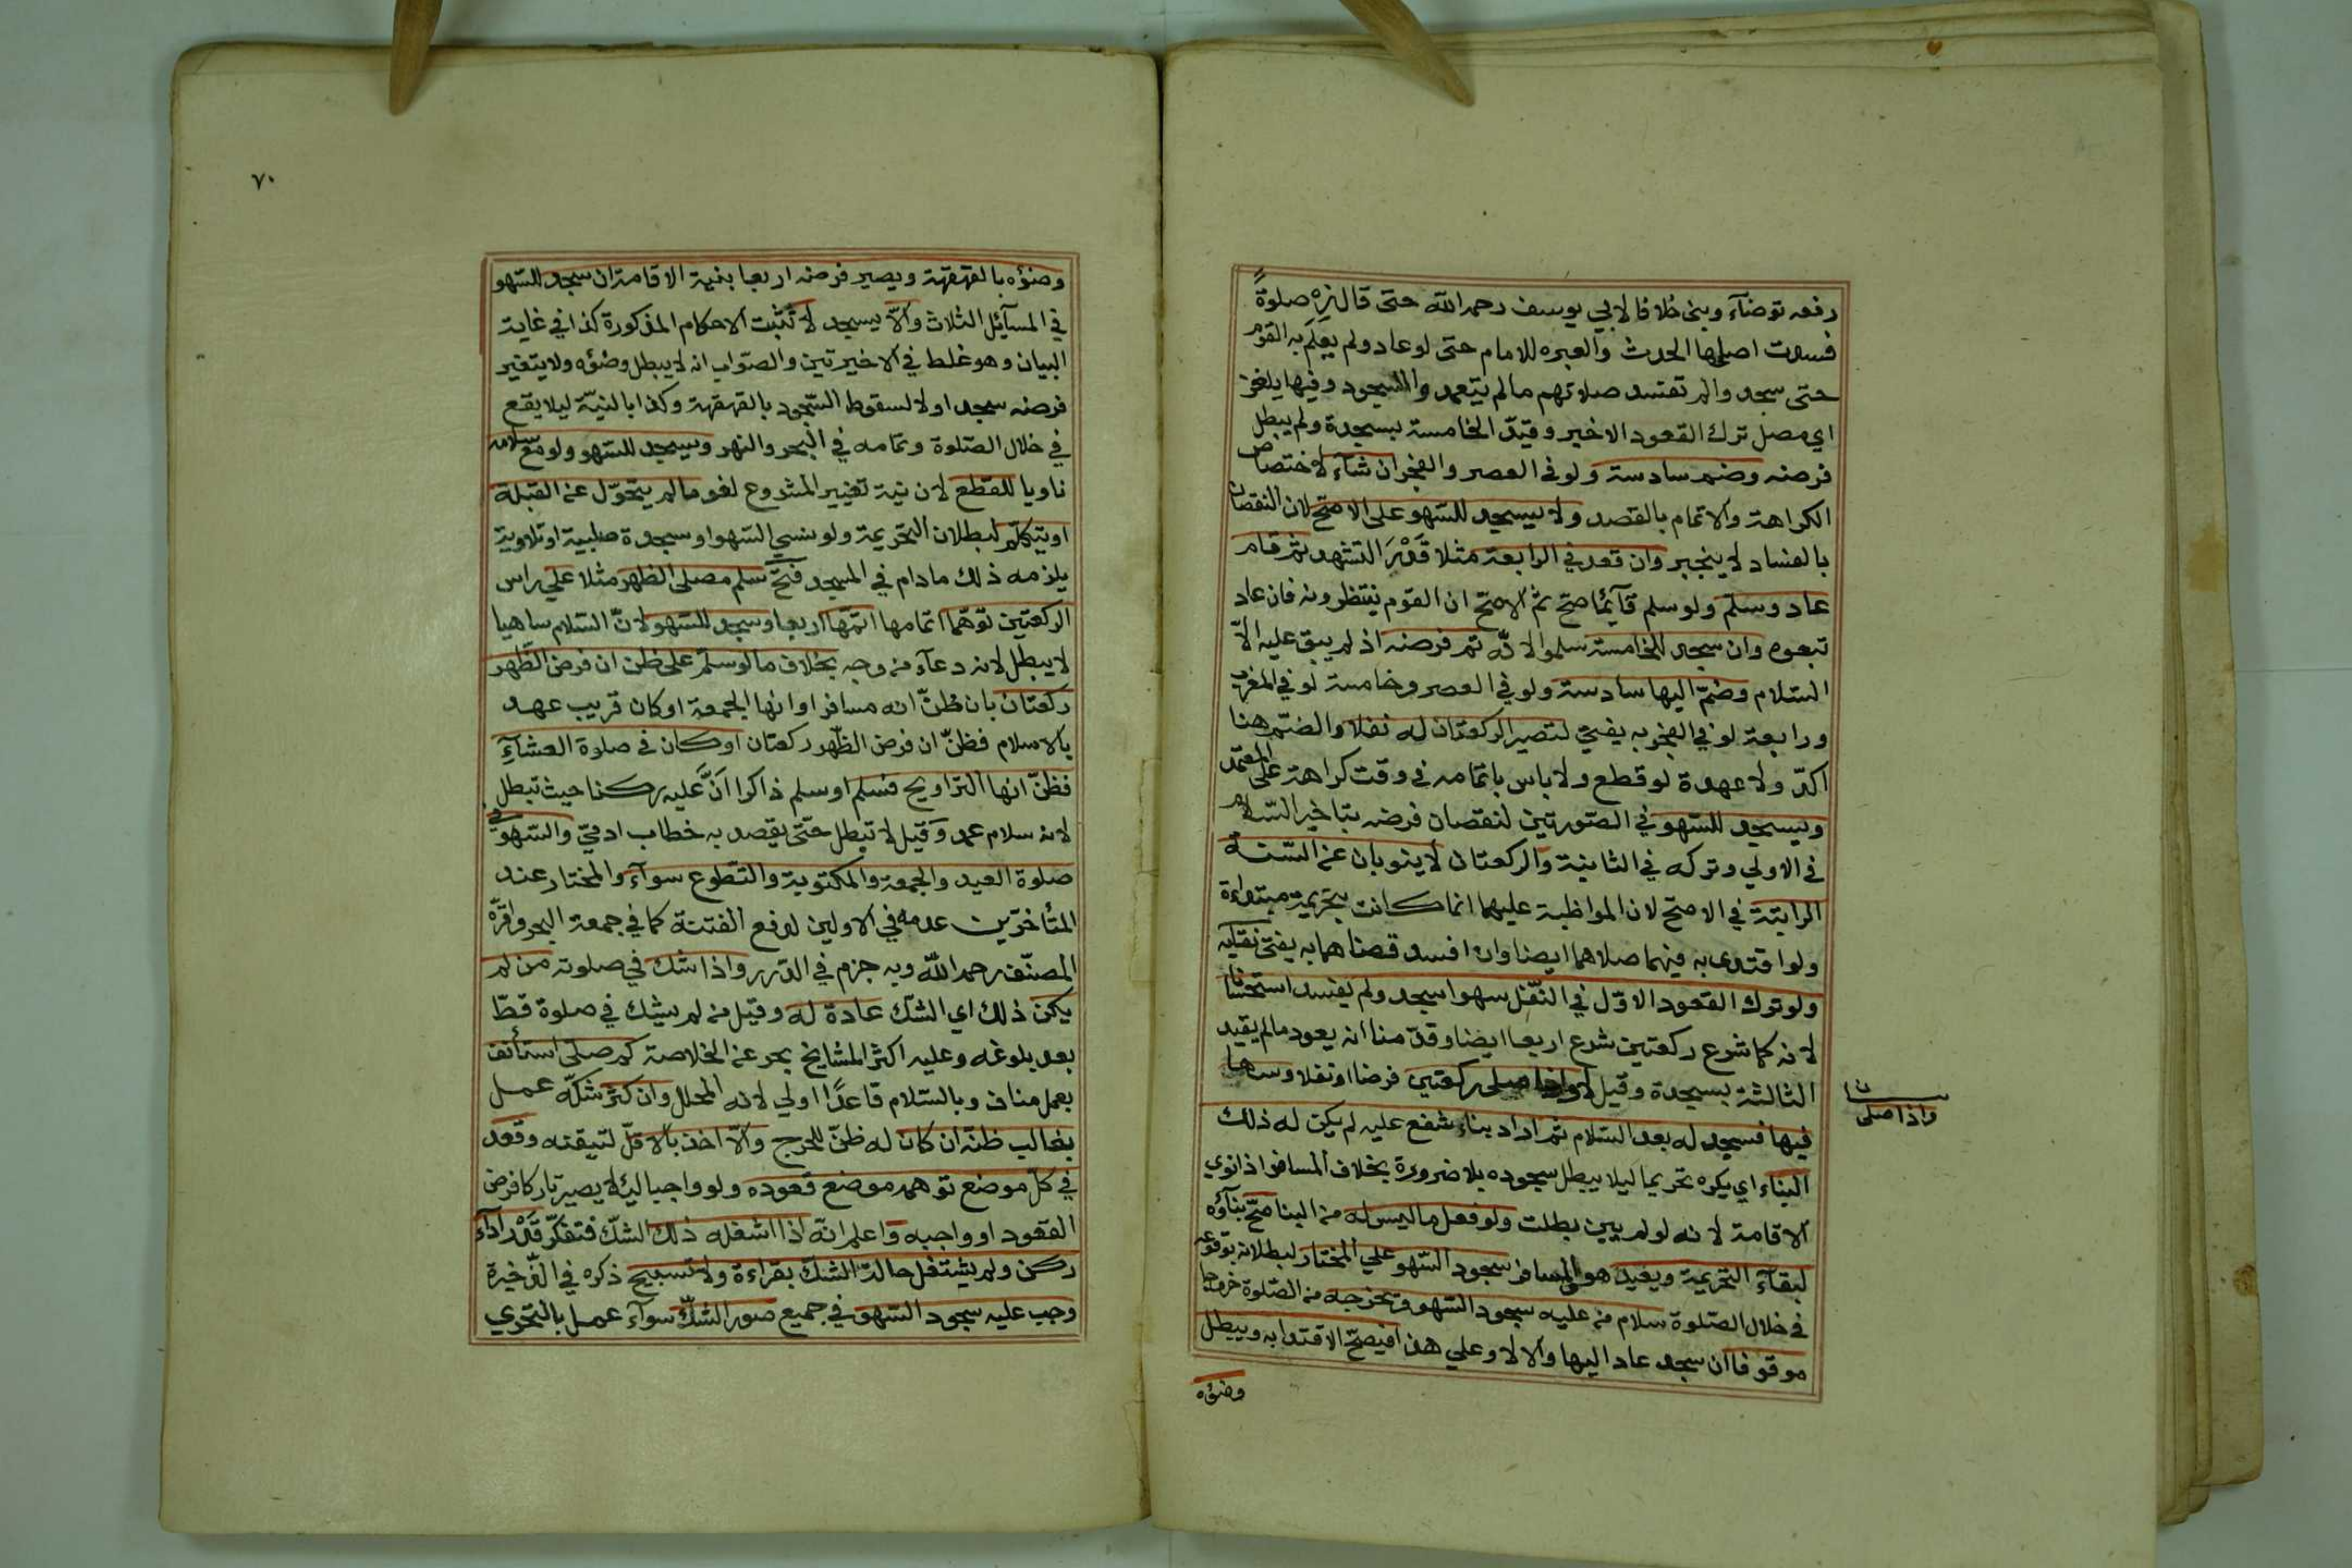 رفعه توضآء وبنى خلافا لابي يوسف رحمه الله حتى قال زه صلوةً
فسدت اصلحها الحدث والعبره للامام حتى لو عاد ولم يعلم به القوم
حتى سجد والم تفسد صلاتهم مالم يتعمد والسجود وفيها يلغز
اي مصل ترك القعود الاخير وقيّد الخامسة بسجدة ولم يبطل
فرضه وضم سادسة ولو في العصر والفجر ان شآء لاختصاص
الكراهة والاتمام بالقصد ولا يسجد للسّهو على الاصحّ لان النقصان
بالفساد لا ينجبر وان قعد في الرابعة مثلا قَدْرَ التشهد ثم قام
عاد وسلم ولو سلم قآئمًا صحّ ثم الاصحّ ان القوم ينتظرونه فان عاد
تبعوه وان سجد للخامسة سلموا لانّه تم فرضه اذ لم يبق عليه الاّ
السّلام وضمّ اليها سادسة ولو في العصر وخامسة لو في المغرب
ورابعة لو في الفجر به يفتى لتصير الركعتان له نفلا والضّم هنا
اكدّ ولا عهدة لو قطع ولا باس باتمامه في وقت كراهة على المعتمد
ويسجد للسّهو في الصّورتين لنقصان فرضه بتاخير السّلام
في الاولي وتركه في الثانية والركعتان لا ينوبان عن السّنة
الراتبة في الاصحّ لان المواظبة عليهما انما كانت بتحريمة مبتداءة
ولو اقتدى به فيهما صلاهما ايضا وان افسد قضاهما به يفتى نقايه
ولو ترك القعود الاوّل في النّفل سهوا سجد ولم يفسد استحسانا
لانه كما شرع ركعتين شرع اربعا ايضا وقدّمنا انه يعود مالم يقيد
الثالثة بسجدة وقيل لا واذا صلى ركعتين فرضا او نفلا وسها
واذا صلى
فيها فسجد له بعد السّلام ثم اراد بناء شفع عليه لم يكن له ذلك
البناء اي يكره تحريما ليلا يبطل سجوده بلا ضرورة بخلاف المسافر اذا نوي
الاقامة لانه لو لم يبن بطلت ولو فعل ما ليس له من البنا صحّ بنآؤه
لبقآء التحريمة ويعيد هو والمسافر سجود السّهو علي المختار لبطلانه بوقوعه
في خلال الصّلوة سلام من عليه سجود السّهو يخرجه من الصّلوة خروجا
موقوفا ان سجد عاد اليها والا لا وعلي هذا فيصحّ الاقتدا به ويبطل
وضوٰه
٧٠
وضوٰه بالقهقهة ويصير فرضه اربعا بنية الاقامة ان سجد للسّهو
في المسآئل الثلاث والاّ يسجد لا تثبت الاحكام المذكورة كذا في غاية
البيان وهو غلط في الاخيرتين والصّواب انه لا يبطل وضؤه ولا يتغير
فرضه سجد اولا لسقوط السّجود بالقهقهة وكذا بالنيّة ليلا يقع
في خلال الصّلوة وتمامه في البحر والنهر ويسجد للسّهو ولو مع سلامه
ناويا للقطع لان نية تغيير المشروع لغو مالم يتحوّل عن القبلة
او يتكلّم لبطلان التحريمة ولو نسي السّهو او سجدة صلبية او تلاوية
يلزمه ذلك مادام في المسجد فتحّ سلم مصلى الظهر مثلا علي راس
الركعتين توهّما اتمامها اتمّها اربعا وسجد للسّهو لانّ السّلام ساهيا
لا يبطل لانه دعآء من وجه بخلاف مالو سلّم على ظن ان فرض الظّهر
ركعتان بان ظنّ انه مسافر او انها الجمعة او كان قريب عهد
بالاسلام فظنّ ان فرض الظّهر ركعتان او كان في صلاة العشآءِ
فظنّ انها التراويح فسلم او سلم ذاكرا انَّ عليه ركنا حيث تبطل
لانه سلام عمد وقيل لا تبطل حتّى يقصد به خطاب ادميّ والسّهو في
صلوة العيد والجمعة والمكتوبة والتّطوع سوآء والمختار عند
المتأخرّين عدمه في الاولين لدفع الفتنة كما في جمعة البحر واقرّه
المصنّف رحمه اللّه وبه جزم في الدّرر واذا شك في صلوته من لم
يكن ذلك اي الشّك عادة له وقيل من لم يشك في صلوة قطّ
بعد بلوغه وعليه اكثر المشايخ بحر عن الخلاصة كم صلى استأنف
بعمل مناف وبالسّلام قاعدًا اولي لانه المحلل وان كثر شكّه عمل
بغالب ظنّه ان كان له ظنّ للحرج والاّ اخذ بالاقلّ لتيقنه وقعد
في كلّ موضع توهمه موضع قعوده ولو واجبا ليلا يصير تاركا فرض
القعود او واجبه واعلم انّه اذا اشغله ذلك الشّك فتفكّر قَدْر ادآء
ركن ولم يشتغل حالة الشّك بقراءة ولا تسبيح ذكره في الذّخيرة
وجب عليه سجود السّهو في جميع صور الشّك سوآء عمل بالتحري